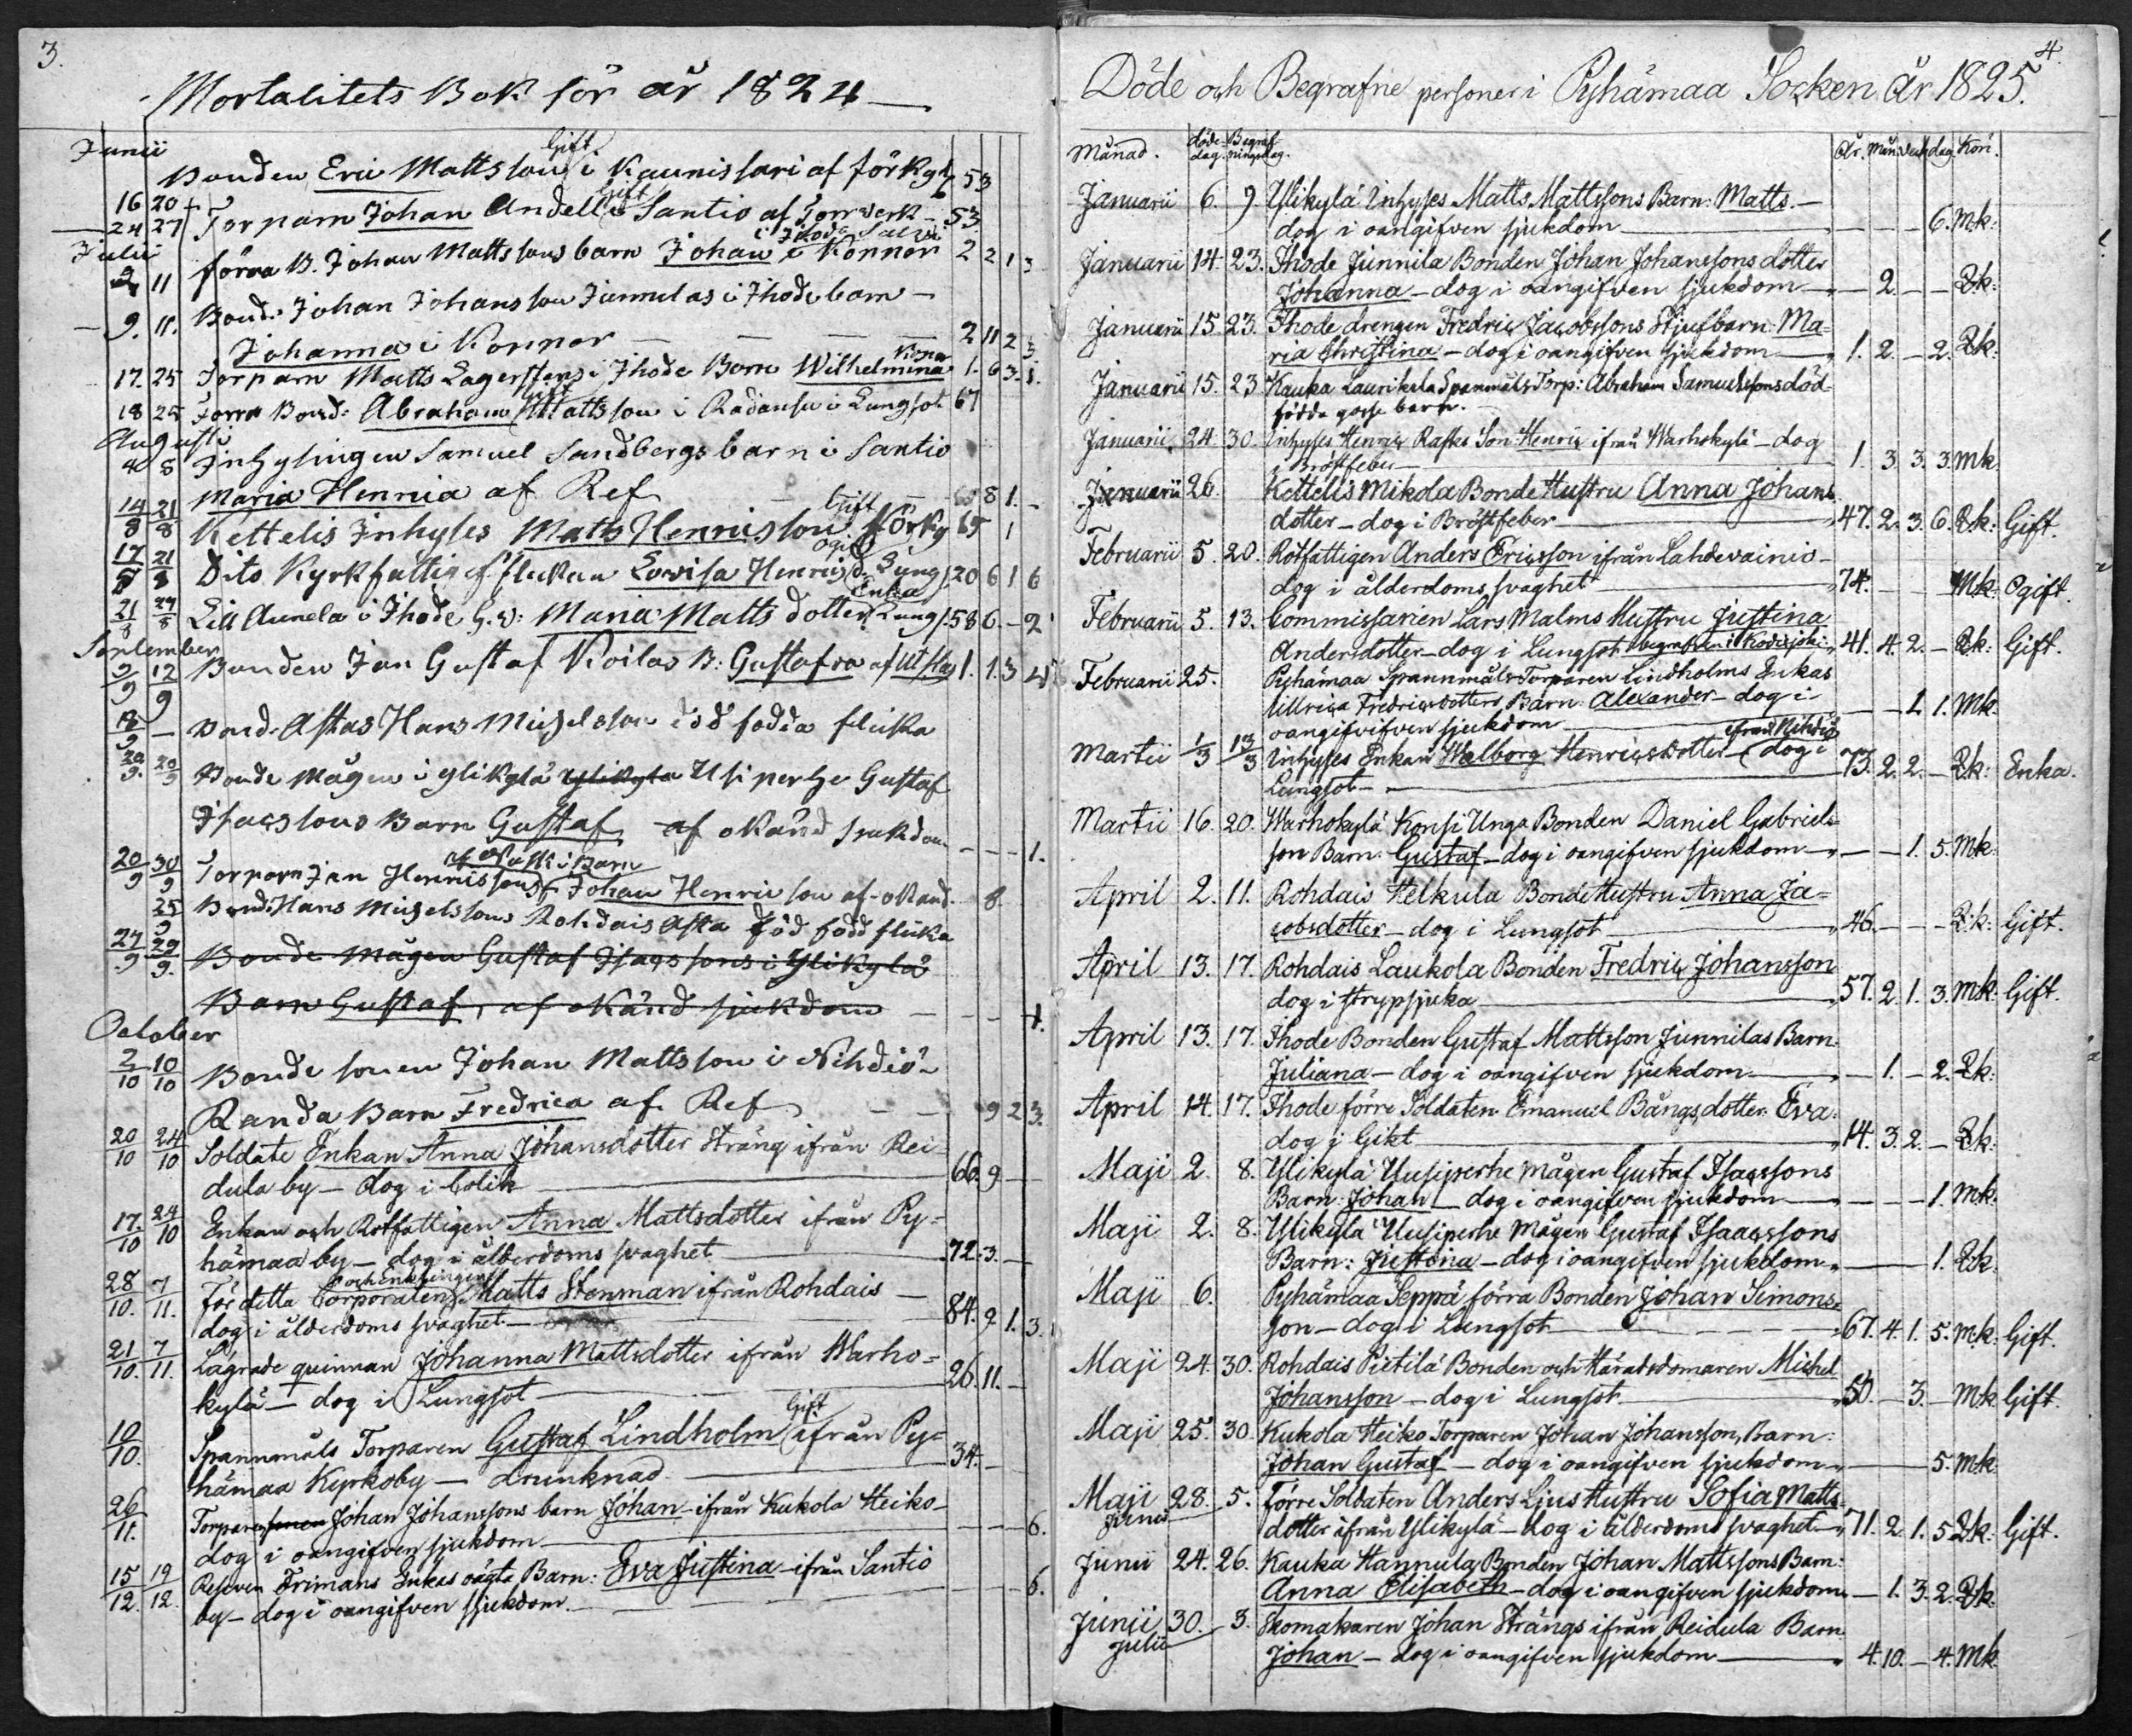 3.
Mortalitets Bok för år 1824
Junii
Gift
Bonden Eric Mattsson i Kaunissari af förkyl 53
16 20
Gift
24 27 Torparn Johan Andell i Santio af Torrverk 53
Julii
i Ihode
2 11 förra B. Johan Mattssons barn Johan i Konnor 2 2 1 3
9. 11. Bond: Johan Johansson Junnilas i Ihode barn
Johanna i Konnor 2 11 2 3.
17. 25 Torparn Matts Lagerstens i Ihode Barn Wilhelmina 1. 6 3. 1.
18 25 Förra Bond: Abraham Mattsson i Lungsot 67
Augusti
4 8 Inhysingen Samuel Sandbergs barn i Santio
Maria Hennia af Ref 8 1.
Gift
14/8 21/8 Kettelis Inhyses Matts Henricsson förky 65 1
Ogift
17/8 21/8 Dito Kyrkfattig flickan Lovisa Henricsd. Lung 20 6 1 6
Enka
21/8 27/8 Lill Aunela i Ihode G.w: Maria Matts dotter Lung 58 6. - 2
September
3/9 12/9 Bonden Jan Gustaf Koilas B: Gustafva af Utslag 1. 1. 3
18/9 Bond. Astas Hans Michelsson död födda flicka
20/9. 20/9 Bonde Mågen i Ylikylä Ylikylä Usiperhe Gustaf
Isacssons Barn Gustaf af okänd sjukdom 1.
20/9 30/9 Torparn Jan Henricssons Johan Henric son af okänd. 8.
25/9 Bond: Hans Michelssons Rohdais Asta död född flicka
27/9 29/9. Bonde Mågen Gustaf Isacssons i Ylikylä
Barn Gustaf, af okänd sjukdom 1.
October
2/10 10/10 Bonde sonen Johan Mattsson i Nihdiö
Randa Barn Fredrica af Ref 9 2 3.
20/10 24/10 Soldate Enkan Anna Johansdotter Sträng ifrån Rei-
dula by - dog i Colik 66. 9
17./10 24/10 Enkan och Rotfattigen Anna Mattsdotter ifrån Py-
hämaa by - dog i ålderdoms svaghet 72. 3.
och enklingen
28/10. 7/11. För detta Corporalen Matts Stenman ifrån Rohdais
dog i ålderdoms svaghet 84. 9 1. 3.
21/10. 7/11. Lägrade quinnan Johanna Mattsdotter ifrån Warho-
kylä - dog i Lungsot 26. 11.
Gift
10/10. Spannmåls Torparen Gustaf Lindholm ifrån Py-
hämaa Kyrkoby - drunknad 34.
26/11. Torparesonen Johan Johanssons barn Johan - ifrån Kukola Heiko-
dog i oangifven sjukdom 6.
15/12. 19/12. Reserven Frimans Enkas oägta Barn: Eva Justina - ifrån Santio
by - dog i oangifven sjukdom 6.
4.
Döde och Begrafne personer i Pyhämaa Socken År 1825.
Månad. döde dag. Begrafningsdag. År. Mån. Veck. dag. Kön.
Januarii 6. 9 Ylikylä Inhyses Matts Mattssons Barn: Matts.
dog i oangifven sjukdom 6. Mk:
Januarii 14. 23. Ihode Junnila Bonden Johan Johanssons dotter
Johanna - dog i oangifven sjukdom 2. Qk:
Januarii 15. 23. Ihode drengen Fredric Jacobssons Stjufbarn: Ma-
ria Christina - dog i oangifven sjukdom 1. 2. - 2. Qk:
Januarii 15. 23. Kauka Laurikula Spanmåls Torp: Abraham Samuelssons död
födda gosse barn.
Januarii 24. 30. Inhyses Henric Rafks Son Henric ifrån Warhokylä - dog
i Bröstfeber 1. 3. 3. 3. Mk.
Januarii 26. Kettelis Mikola Bonde Hustru Anna Johans
dotter - dog i Bröstfeber 47. 2. 3. 6. Qk: Gift.
Februarii 5. 20. Rotfattigen Anders Ericsson ifrån Lahdevainio -
dog i ålderdoms svaghet 74. Mk: Ogift.
Februarii 5. 13. Commissarien Lars Malms Hustru Justina
Andersdotter - dog i Lungsot begrafven i Kodisjoki 41. 4. 2. - Qk: Gift.
Februarii 25. Pyhämaa Spannmåls Torparen Lindholms Enkas
Ullrica Fredricsdotters Barn: Alexander - dog i
oangifvifven sjukdom 1. 1. Mk.
ifrån Nihdiö
Martii 1/3 13/3 Inhyses Enkan Walborg Henricsdotter - dog i
Lungsot 73. 2. 2. - Qk: Enka.
Martii 16. 20. Warhokylä Konsi Unga Bonden Daniel Gabriels-
son Barn: Gustaf - dog i oangifven sjukdom 1. 5. Mk:
April 2. 11. Rohdais Helkula Bonde Hustru Anna Ja-
cobsdotter - dog i Lungsot 46. Q:k: Gift.
April 13. 17. Rohdais Laukola Bonden Fredric Johansson
dog i strypsjuka 57. 2. 1. 3. Mk: Gift.
April 13. 17. Ihode Bonden Gustaf Mattsson Junnilas Barn:
Juliana - dog i oangifven sjukdom 1. - 2. Qk:
April 14. 17. Ihode förre Soldaten Emanuel Bångs dotter: Eva:
dog i Gikt 14. 3. 2. - Qk:
Maji 2. 8. Ylikylä Uusiperhe mågen Gustaf Isacssons
Barn: Johan - dog i oangifven sjukdom 1. Mk.
Maji 2. 8. Ylikylä Uusiperhe Mågen Gustaf Isaacssons
Barn: Justina - dog i oangifven sjukdom 1. Qk.
Maji 6. Pyhämaa Seppä förra Bonden Johan Simons-
son - dog i Lungsot 67. 4. 1. 5. Mk: Gift.
Maji 24. 30. Rohdais Pietilä Bonden och Häradsdomaren Michel
Johansson - dog i Lungsot 50. - 3. - Mk Gift.
Maji 25. 30. Kukola Heiko Torparen Johan Johansson, Barn:
Johan Gustaf - dog i oangifven sjukdom 5. Mk
Maji 28. Junii 5. Förre Soldaten Anders Ljus Hustru Sofia Matts-
dotter ifrån Ylikylä - dog i ålderdoms svaghet 71. 2. 1. 5 Qk: Gift.
Junii 24. 26. Kauka Hannula Bonden Johan Mattssons Barn:
Anna Elisabeth - dog i oangifven sjukdom 1. 3. 2. Qk.
Junii 30. Julii 3. Skomakaren Johan Strängs ifrån Reidula Barn:
Johan - dog i oangifven sjukdom 4. 10. - 4. Mk.